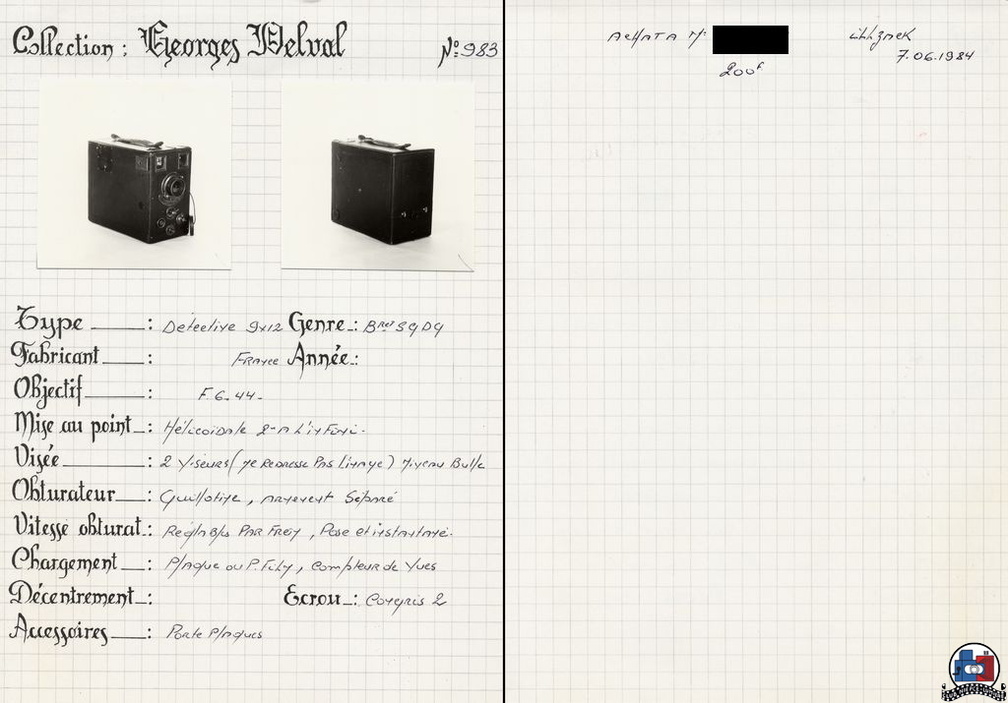 Collection : Georges Delval N°: 983
Type : Détective 9x12 Genre : Bret SGDG
Fabricant : France Année :
Objectif : F 6.44.
Mise au point : Hélicoïdale 2m à l'infini.
Visée : 2 Viseurs (ne Redresse Pas l'image) Niveau Bulle
Obturateur : Guillotine, armement Séparé
Vitesse obturat. : Réglable Par Frein, Pose et instantané.
Chargement : Plaque ou P. Film, Compteur de Vues
Décentrement : Ecrou : Congrès 2
Accessoires : Porte Plaques
Achat à Mr
200F
7.06.1984